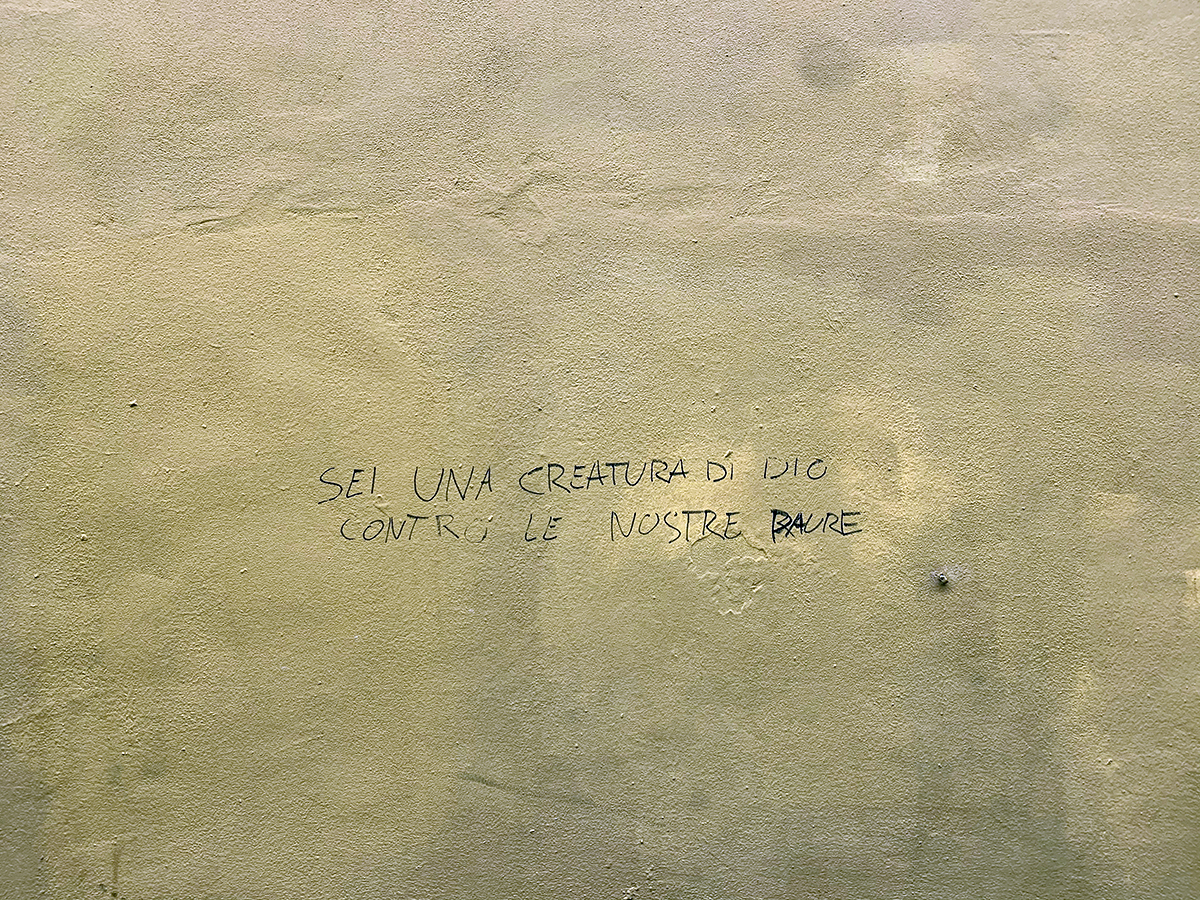 SEI UNA CREATURA DI DIO
CONTRO LE NOSTRE PAURE